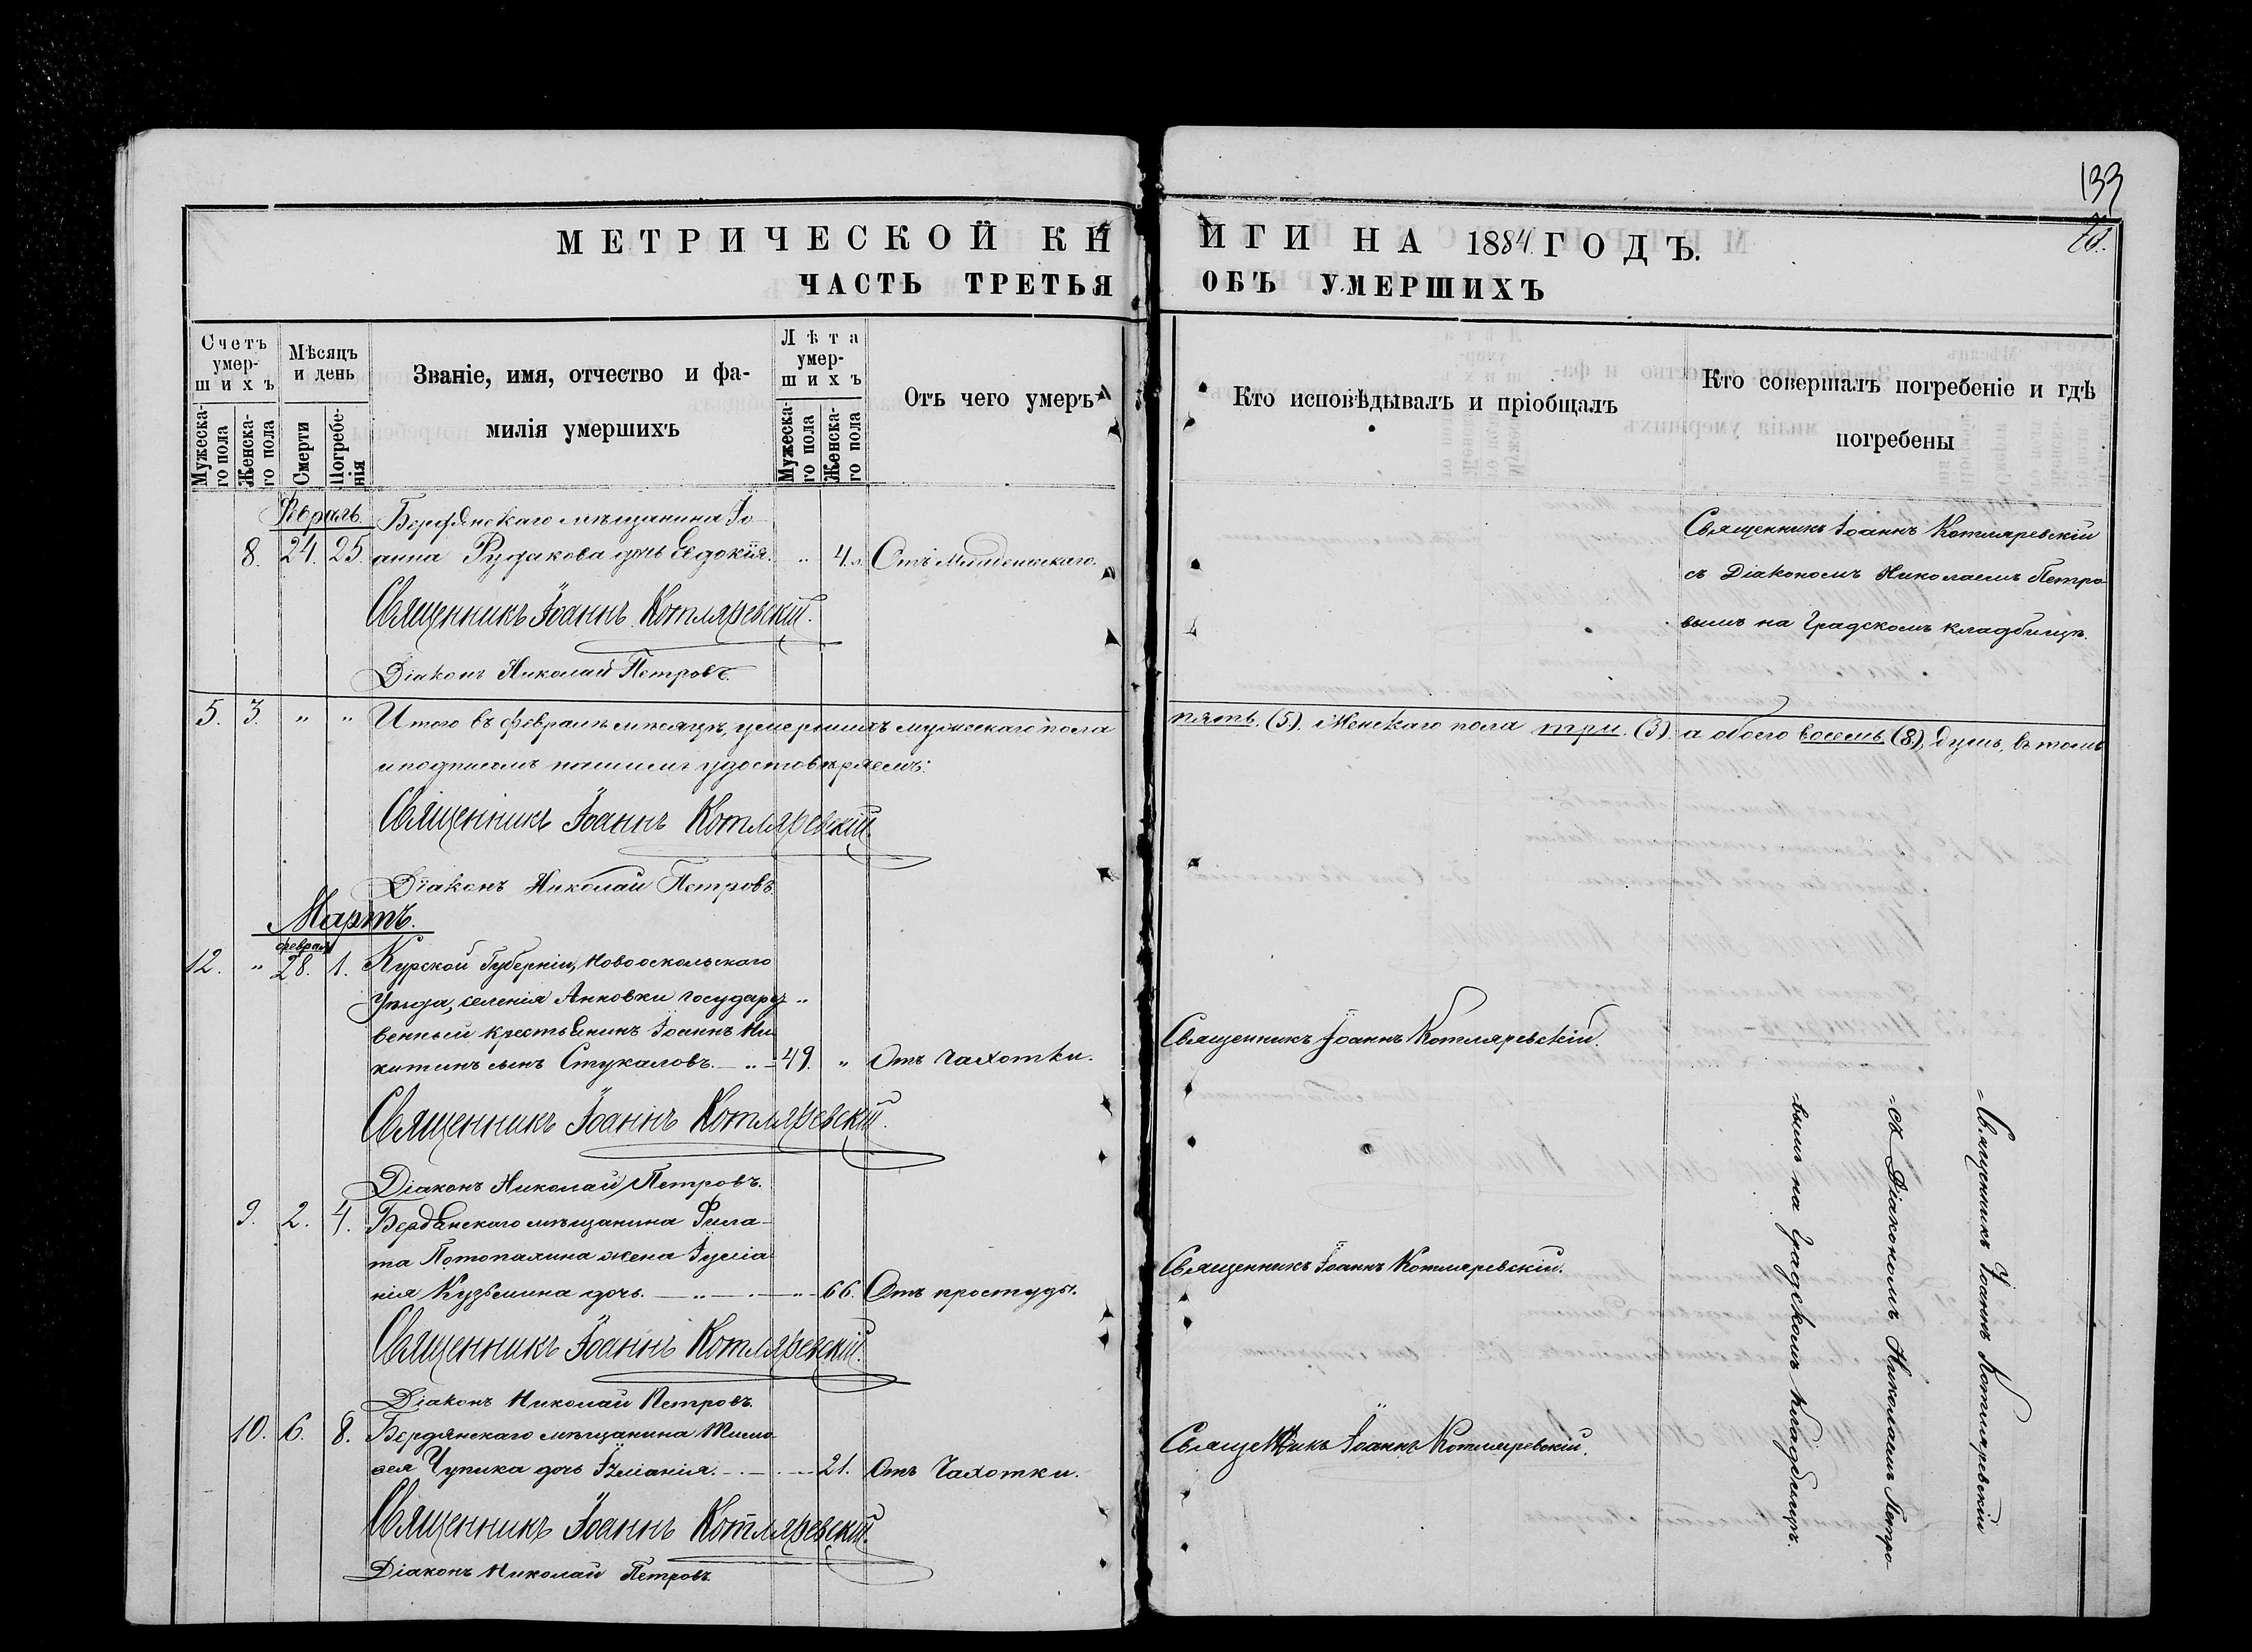 133
МЕТРИЧЕСКОЙ КНИГИ НА 1884 ГОДЪ.
ЧАСТЬ ТРЕТЬЯ ОБЪ УМЕРШИХЪ
Счетъ умер-
шихъ
Мужеска-
го пола
Женска-
го пола
Мѣсяцъ
и день
Смерти
Погребе-
нія
Званіе, имя, отчество и фа-
милія умершихъ
Лѣта
умер-
шихъ
Мужеска-
го пола
Женска-
го пола
Отъ чего умеръ
Кто исповѣдывалъ и пріобщалъ
Кто совершалъ погребеніе и гдѣ
погребены
Февраль.
Бердянскаго мѣщанина Іо-
8. 24. 25. анна Рудакова дочь Евдокія. " 4. Отъ Младенческаго.
Священникъ Іоаннъ Котляревскій
съ Діакономъ Николаемъ Петро-
вымъ на Градскомъ кладбищѣ.
Священникъ Іоаннъ Котляревскій.
Діаконъ Николай Петровъ.
5. 3. " " Итого въ февралѣ мѣсяцѣ, умершихъ мужескаго пола пять. (5). Женскаго пола три. (3) а обоего восемь (8) душъ, въ томъ
и подписомъ нашимъ удостовѣряемъ:
Священникъ Іоаннъ Котляревскій.
Діаконъ Николай Петровъ.
Мартъ.
февраля
12. " 28. 1. Курской Губерніи, Новооскольскаго
Уѣзда, селенія Анковки государ-
венный крестьянинъ Іоаннъ Ни-
китинъ сынъ Стукаловъ. 49. " Отъ Чахотки.
Священникъ Іоаннъ Котляревскій.
Священникъ Іоаннъ Котляревскій.
Діаконъ Николай Петровъ.
9. 2. 4. Бердянскаго мѣщанина Фила-
та Потопахина жена Іуліа
нія Кузьмина дочь. " 66. Отъ простуды.
Священникъ Іоаннъ Котляревскій.
Священникъ Іоаннъ Котляревскій.
Діаконъ Николай Петровъ.
10. 6. 8. Бердянскаго мѣщанина Тимо
ѳея Чупика дочь Іуліанія. 21. Отъ Чахотки.
Священникъ Іоаннъ Котляревскій.
Священникъ Іоаннъ Котляревскій.
Діаконъ Николай Петровъ.
Священникъ Іоаннъ Котляревскій
съ Діакономъ Николаемъ Петро-
вымъ на Градскомъ кладбищѣ.